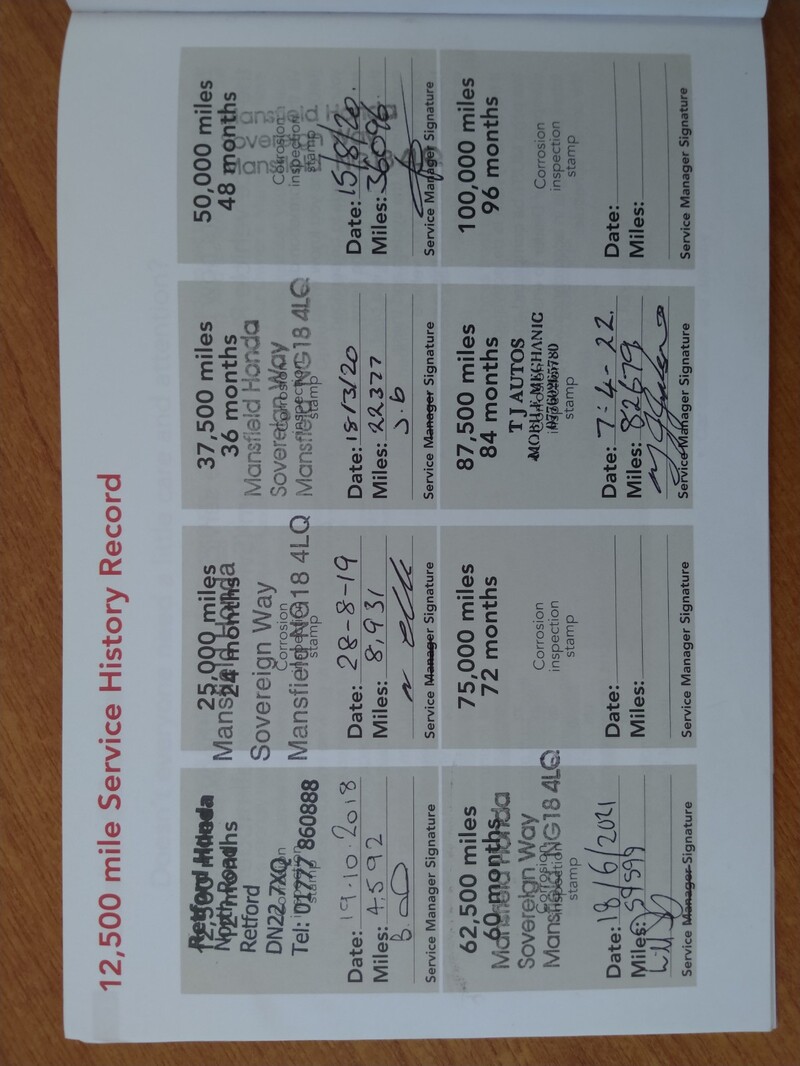 12,500 mile Service History Record
Retford Honda
12,500 miles
North Road
12 months
Retford
DN22 7XQ
Corrosion
inspection
stamp
Tel: 01777 860888
Date: 19.10.2018
Miles: 4,592
Service Manager Signature
25,000 miles
24 months
Mansfield Honda
Sovereign Way
Mansfield NG18 4LQ
Corrosion
inspection
stamp
Date: 28-8-19
Miles: 8,931
Service Manager Signature
37,500 miles
36 months
Mansfield Honda
Sovereign Way
Mansfield NG18 4LQ
Corrosion
inspection
stamp
Date: 18/3/20
Miles: 22377
J.b
Service Manager Signature
50,000 miles
48 months
Corrosion
inspection
stamp
Date: 15/8/20.
Miles: 36096
Service Manager Signature
62,500 miles
60 months
Mansfield Honda
Sovereign Way
Mansfield NG18 4LQ
Corrosion
inspection
stamp
Date: 18/6/2021
Miles: 59599
Service Manager Signature
75,000 miles
72 months
Corrosion
inspection
stamp
Date:
Miles:
Service Manager Signature
87,500 miles
84 months
T J AUTOS
MOBILE MECHANIC
Corrosion
inspection
stamp
Date: 7-4-22.
Miles: 82679
Service Manager Signature
100,000 miles
96 months
Corrosion
inspection
stamp
Date:
Miles:
Service Manager Signature